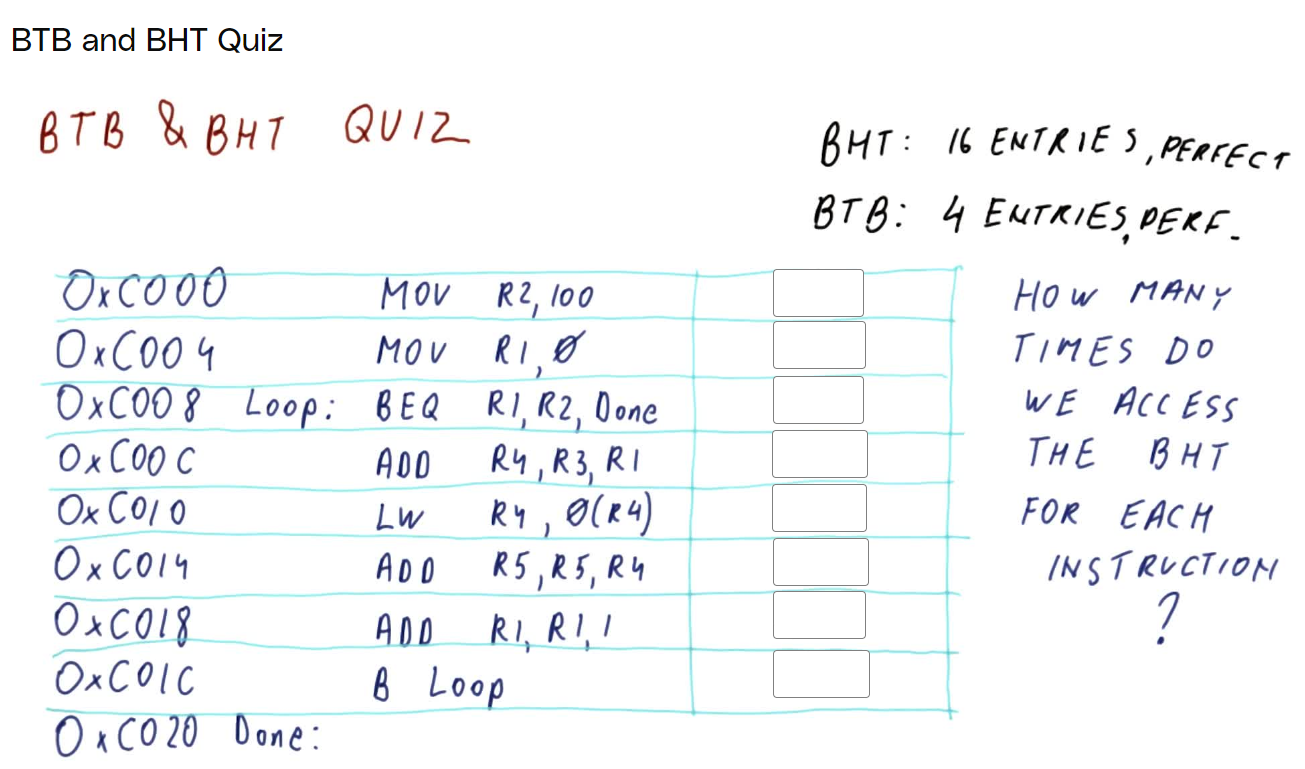 BTB and BHT Quiz
BTB & BHT QUIZ
BHT: 16 ENTRIES, PERFECT
BTB: 4 ENTRIES, PERF.
0xC000 MOV R2, 100
0xC004 MOV R1, Ø
0xC008 Loop: BEQ R1, R2, Done
0xC00C ADD R4, R3, R1
0xC010 LW R4, Ø(R4)
0xC014 ADD R5, R5, R4
0xC018 ADD R1, R1, 1
0xC01C B Loop
0xC020 Done:
HOW MANY
TIMES DO
WE ACCESS
THE BHT
FOR EACH
INSTRUCTION
?